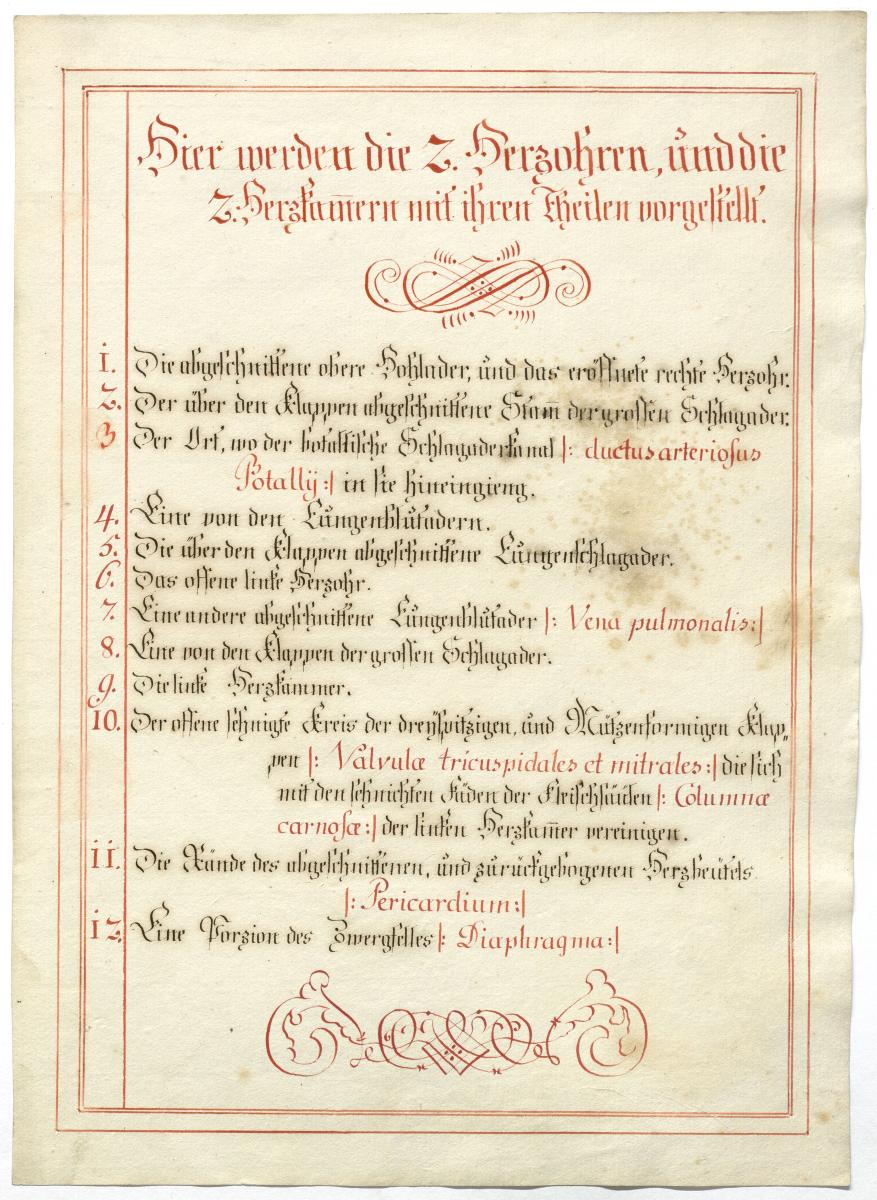 Hier werden die 2. Herzohren, und die
2. Herzkam̅ern mit ihren Theilen vorgestellt.
1. Die abgeschnittene obere Hohlader, und das eröffnete rechte Herzohr.
2. Der über den Klappen abgeschnittene Stam̅ der grossen Schlagader.
3 Der Ort, wo der botallische Schlagaderkanal |: ductus arteriosus
Botallij :| in sie hineingieng.
4. Eine von den Lungenblutadern.
5. Die über den Klappen abgeschnittene Lungenschlagader.
6. Das offene linke Herzohr.
7. Eine andere abgeschnittene Lungenblutader |: Vena pulmonalis :|
8. Eine von den Klappen der grossen Schlagader.
9. Die linke Herzkammer.
10. Der offene sehnigte Kreis der dreyspitzigen, und Mützenformigen Klap„
pen |: Valvulæ tricuspidales et mitrales :| die sich
mit den sehnichten Fäden der Fleischsäulen |: Columnæ
carnosæ :| der linken Herzkam̅er vereinigen.
11. Die Ründe des abgeschnittenen, und zurückgebogenen Herzbeutels
|: Pericardium :|
12. Eine Porzion des Zwergfelles |: Diaphragma :|